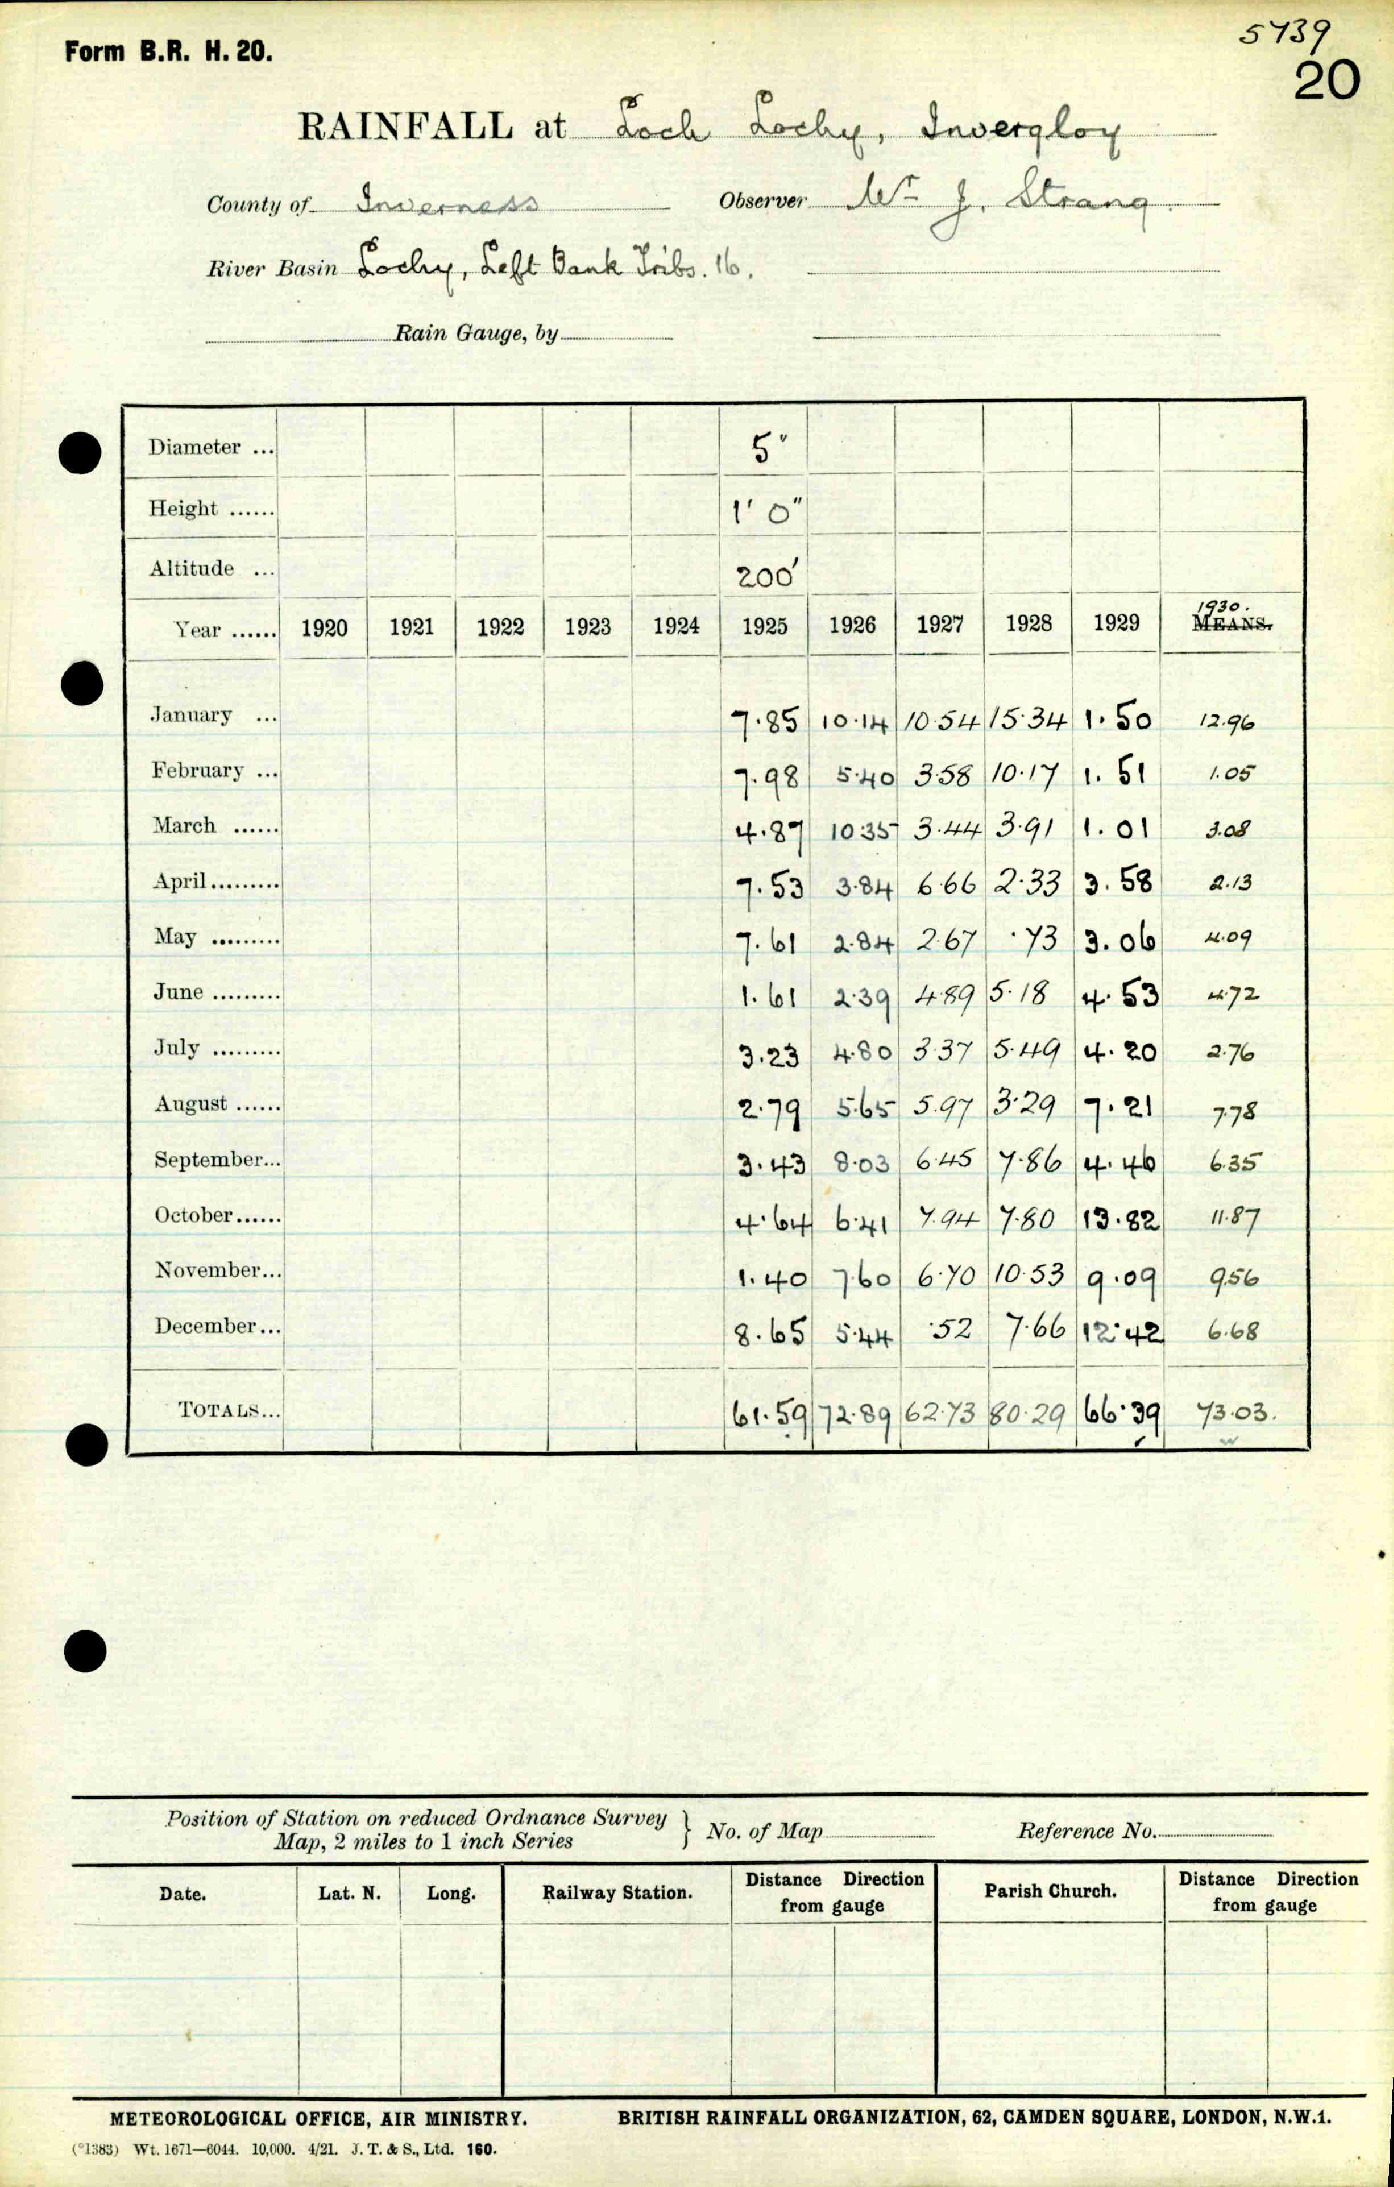 Form B.R. H. 20.
5739
20
RAINFALL at Loch Lochy, Invergloy
County of Inverness Observer Mr J. Strang.
River Basin Lochy, Left Bank Tribs. 16.
Rain Gauge, by
Diameter ... 5"
Height ...... 1' 0"
Altitude ... 200'
1930.
Year ...... 1920 1921 1922 1923 1924 1925 1926 1927 1928 1929 MEANS.
January ... 7.85 10.14 10.54 15.34 1.50 12.96
February ... 7.98 5.40 3.58 10.17 1.51 1.05
March ...... 4.87 10.35 3.44 3.91 1.01 3.08
April ......... 7.53 3.84 6.66 2.33 3.58 2.13
May ......... 7.61 2.84 2.67 .73 3.06 4.09
June ......... 1.61 2.39 4.89 5.18 4.53 4.72
July ......... 3.23 4.80 3.37 5.49 4.20 2.76
August ...... 2.79 5.65 5.97 3.29 7.21 7.78
September... 3.43 8.03 6.45 7.86 4.46 6.35
October...... 4.64 6.41 7.94 7.80 13.82 11.87
November... 1.40 7.60 6.70 10.53 9.09 9.56
December... 8.65 5.44 .52 7.66 12.42 6.68
TOTALS... 61.59 72.89 62.73 80.29 66.39 73.03.
Position of Station on reduced Ordnance Survey
Map, 2 miles to 1 inch Series } No. of Map Reference No.
Date. Lat. N. Long. Railway Station. Distance Direction from gauge Parish Church. Distance Direction from gauge
METEOROLOGICAL OFFICE, AIR MINISTRY. BRITISH RAINFALL ORGANIZATION, 62, CAMDEN SQUARE, LONDON, N.W.1.
(*1383) Wt. 1671—6044. 10,000. 4/21. J. T. & S., Ltd. 160.